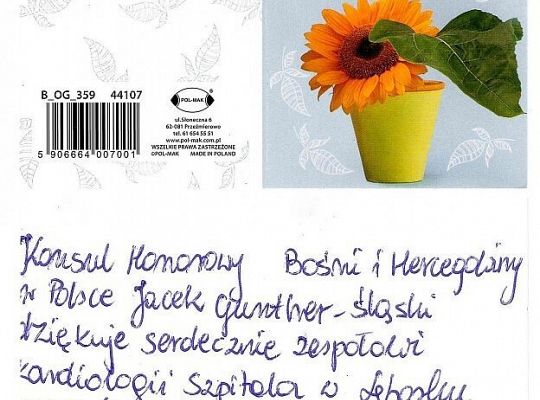 B_OG_359 44107
5 906664 007001
POL-MAK
ul.Słoneczna 6
62-081 Przeźmierowo
tel. 61 654 55 51
www.pol-mak.com.pl
WSZELKIE PRAWA ZASTRZEŻONE
©POL-MAK MADE IN POLAND
Konsul Honorowy Bośni i Hercegowiny
w Polsce Jacek Gunther-Śląski
dziękuje serdecznie zespołowi
kardiologii Szpitala w